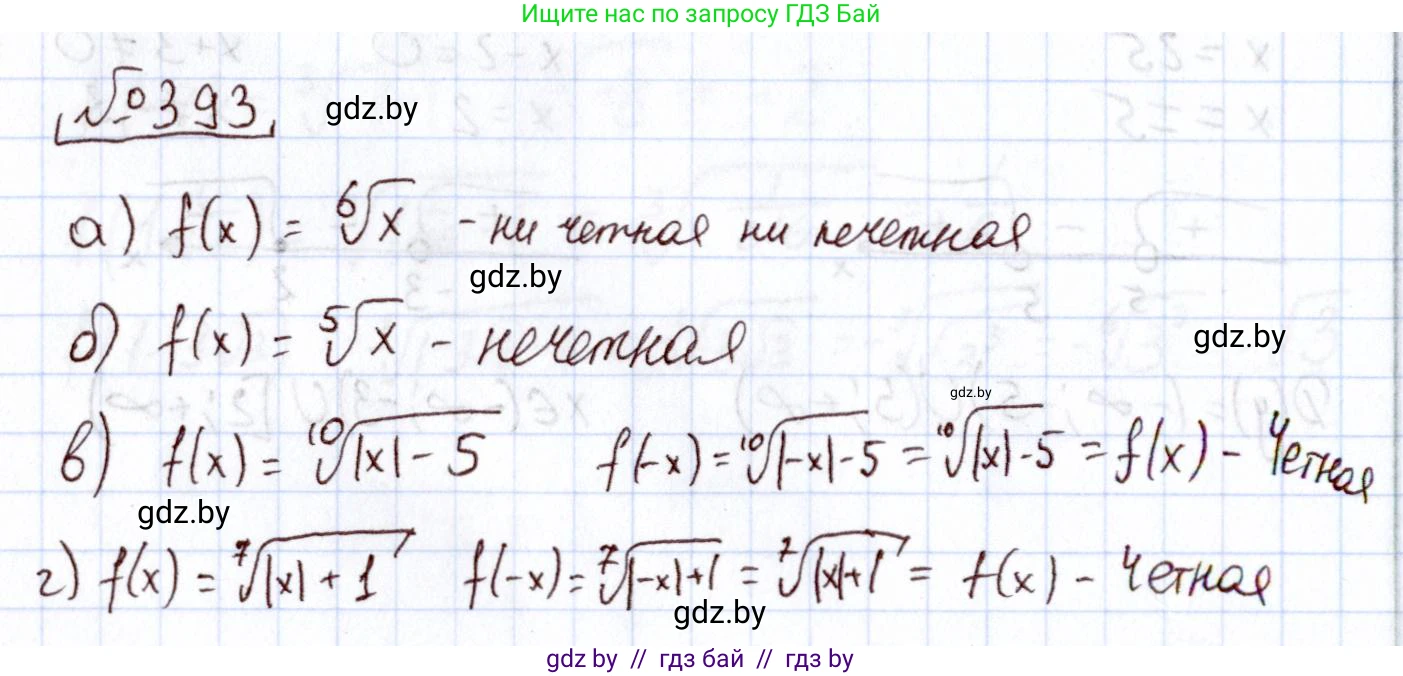 Ищите нас по запросу ГДЗ Бай
№393
gdz.by
а) f(x) = ⁶√x - ни четная ни нечетная
gdz.by
б) f(x) = ⁵√x - нечетная
gdz.by
gdz.by
в) f(x) = ¹⁰√(|x| - 5) f(-x) = ¹⁰√(|-x| - 5) = ¹⁰√(|x| - 5) = f(x) - Четная
gdz.by
г) f(x) = ⁷√(|x| + 1) f(-x) = ⁷√(|-x| + 1) = ⁷√(|x| + 1) = f(x) - Четная
gdz.by
gdz by // гдз бай // гдз by